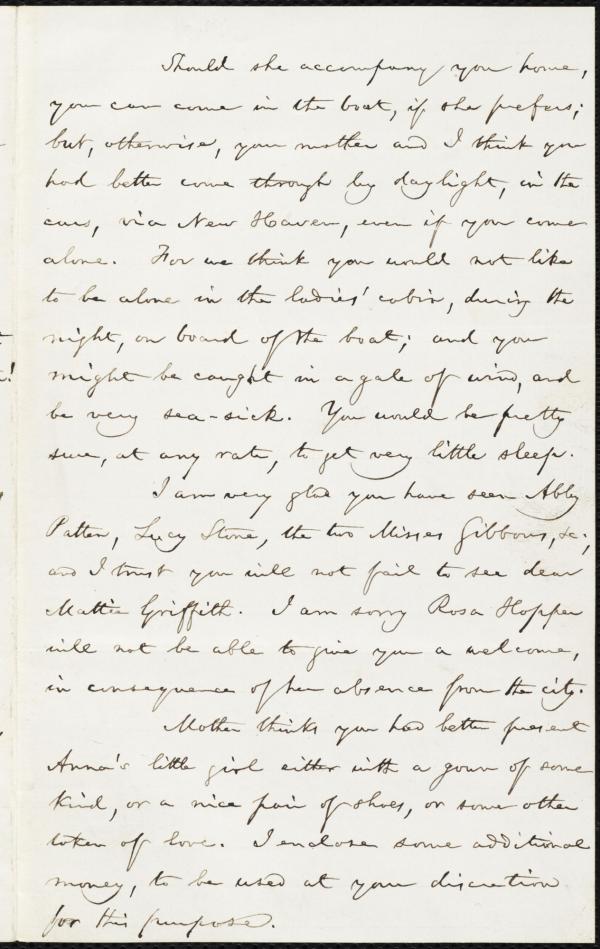 Should she accompany you home,
you can come in the boat, if she prefers;
but, otherwise, your mother and I think you
had better come through by daylight, in the
cars, via New Haven, even if you come
alone. For we think you would not like
to be alone in the ladies' cabin, during the
night, on board of the boat; and you
might be caught in a gale of wind, and
be very sea-sick. You would be pretty
sure, at any rate, to get very little sleep.
I am very glad you have seen Abby
Patten, Lucy Stone, the two Misses Gibbons, &c.;
and I trust you will not fail to see dear
Mattie Griffith. I am sorry Rosa Hopper
will not be able to give you a welcome,
in consequence of her absence from the city.
Mother thinks you had better present
Anna's little girl either with a gown of some
kind, or a nice pair of shoes, or some other
token of love. I enclose some additional
money, to be used at your discretion
for this purpose.